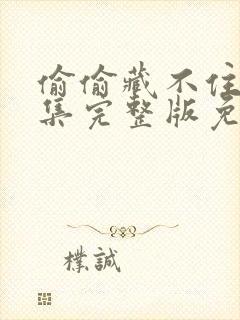 偷偷藏不住
集完整版免
樸誠